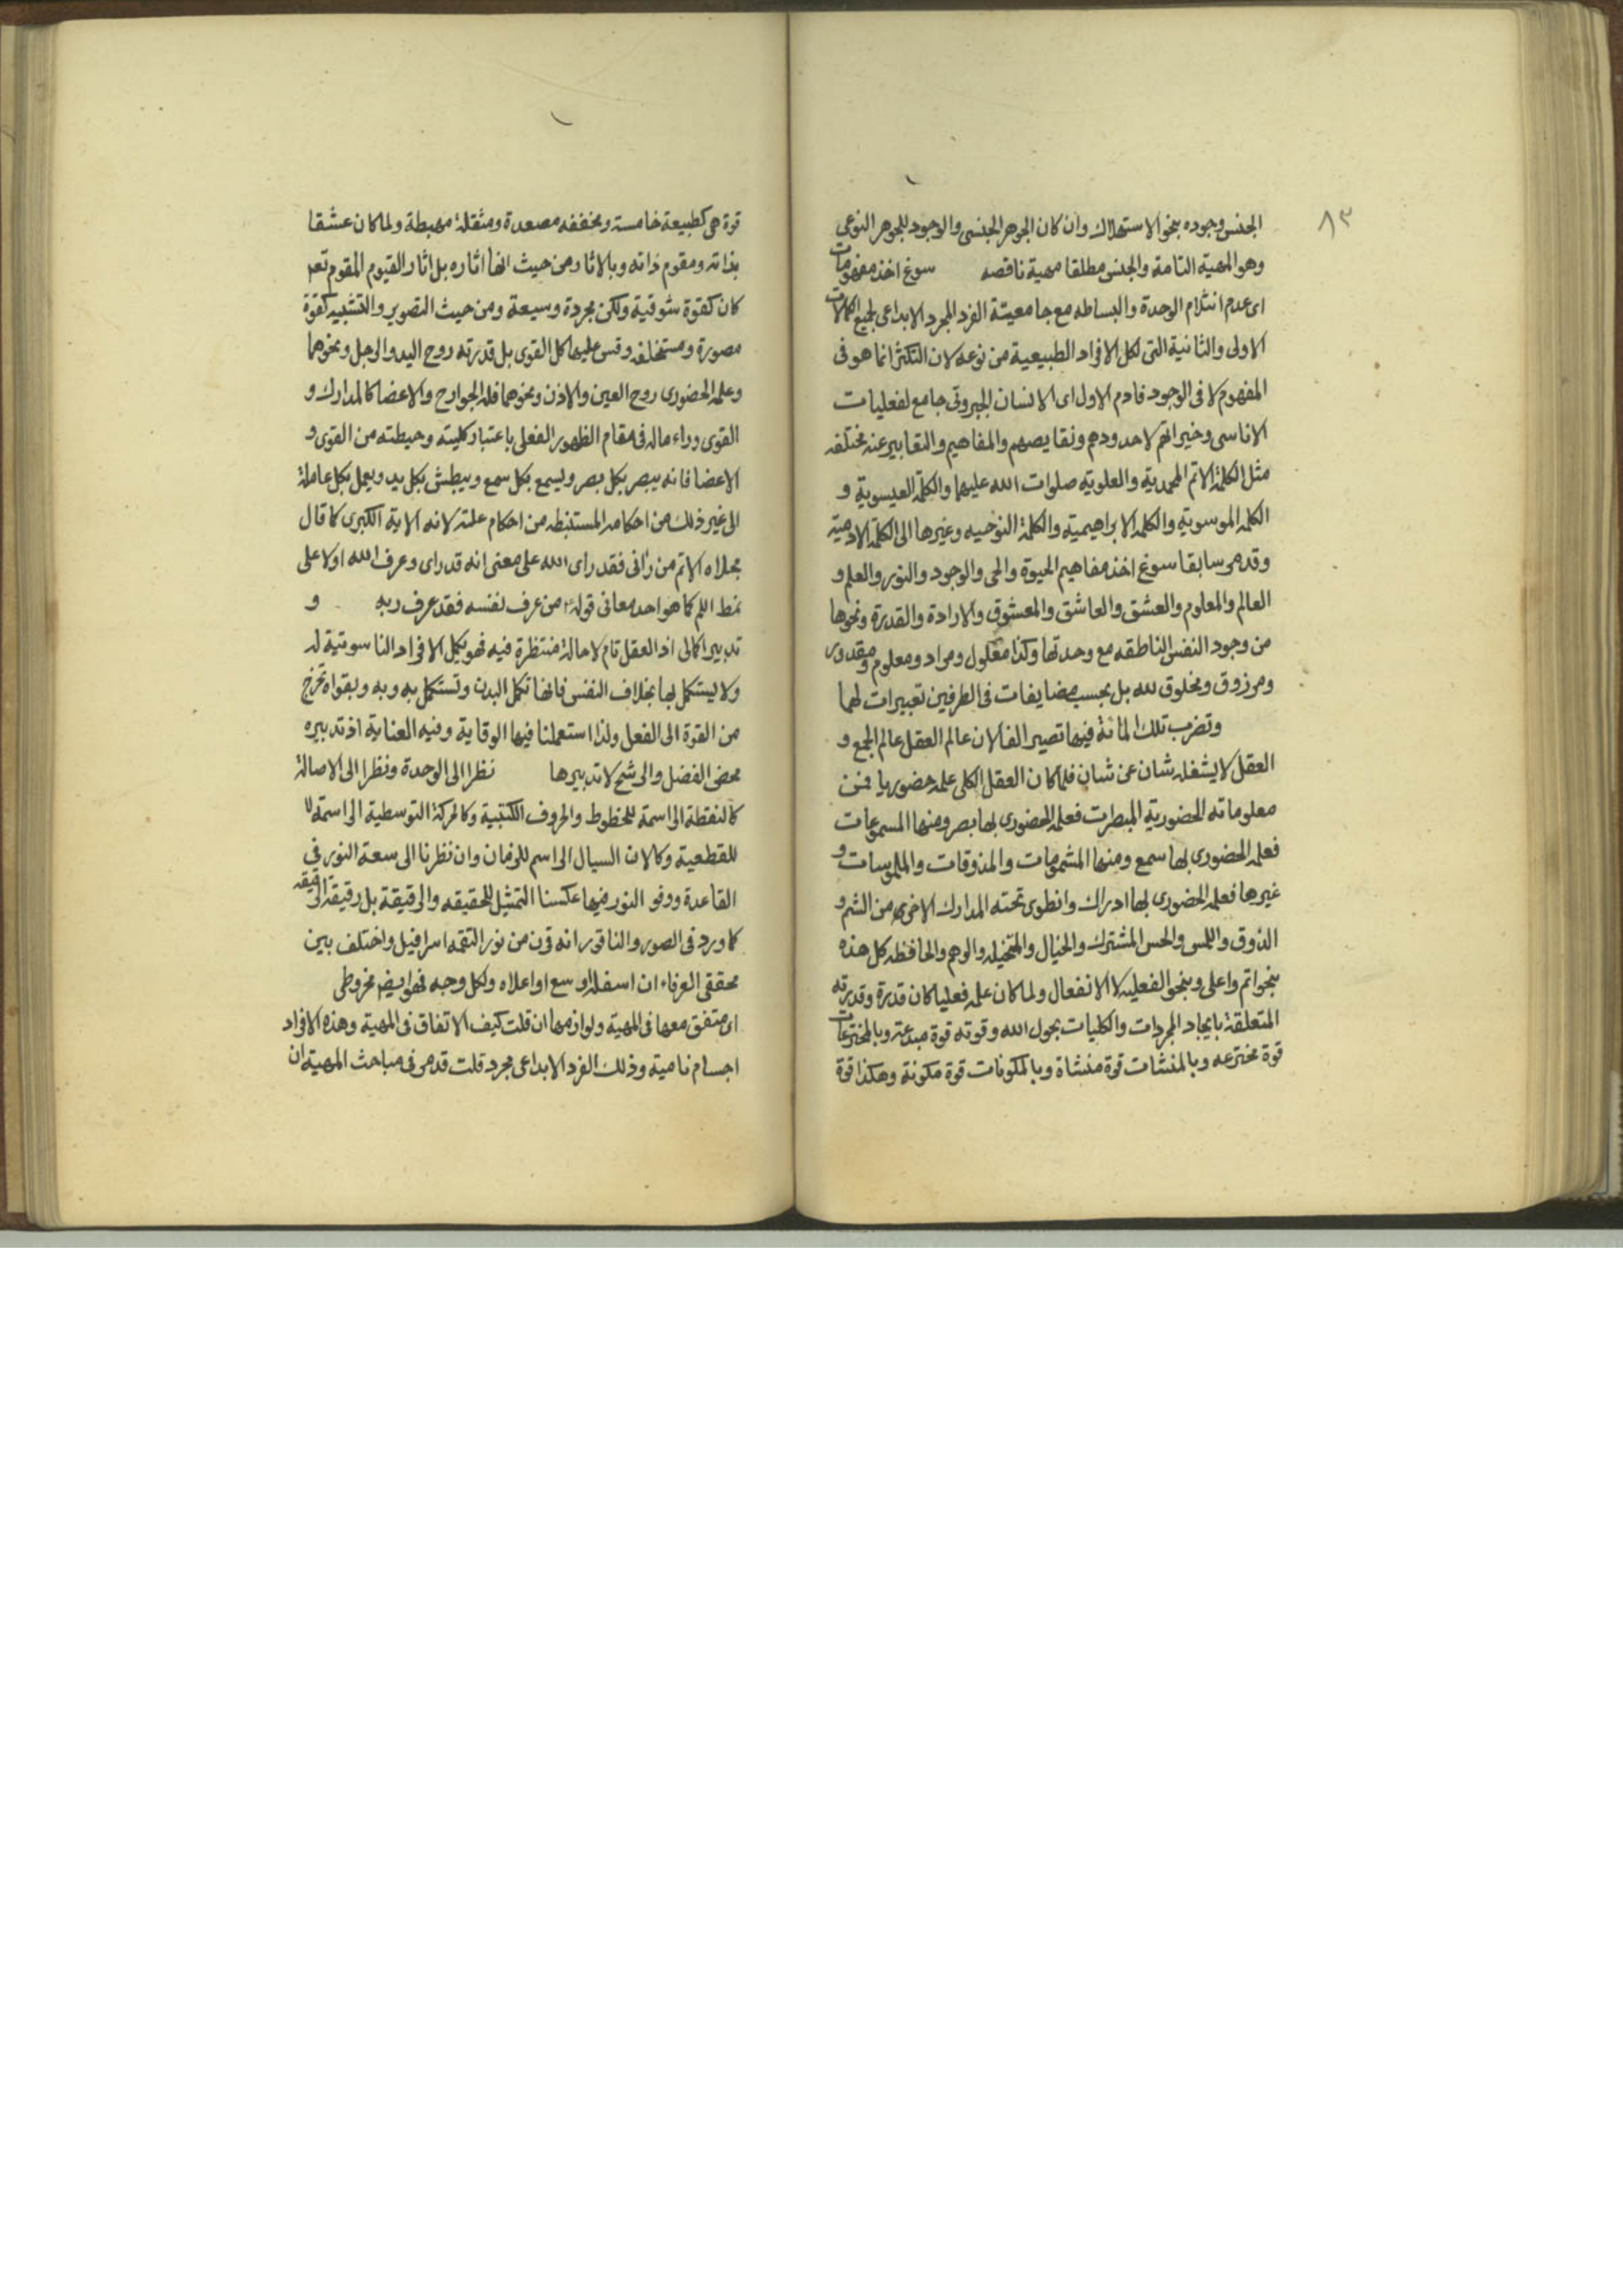 ٨٣
الجنس وجوده بنحو الاستهلاك وان كان الجوهر الجنسى والوجود للجوهر النوعى
وهو المهية التامة والجنس مطلقا مهية ناقصه سوغ اخذ مفهومات
اى عدم انثلام الوحدة والبساطه مع جامعيتة الفرد المجرد الابداعى لجميع الكمالات
الاولى والثانية التى لكل الافراد الطبيعية من نوعه لان التكثر انما هو فى
المفهوم لا فى الوجود فادم الاول اى الانسان الجبروتى جامع لفعليات
الاناسى وخيراتهم لا حدودهم ونقايصهم والمفاهيم والتعابير عنه مختلفه
مثل الكلمة الاتم المحمدية والعلوية صلوات الله عليهما والكلمة العيسوية و
الكلمه الموسوية والكلمه الابراهيمية والكلمة النوحيه وغيرها الى الكلمة الادمية
وقد مر سابقا سوغ اخذ مفاهيم الحيوة والحى والوجود والنور والعلم و
العالم والمعلوم والعشق والعاشق والمعشوق والارادة والقدرة ونحوها
من وجود النفس الناطقه مع وحدتها وكذا معلول ومراد ومعلوم ومقدور
ومرزوق ومخلوق لله بل بحسب مضايفات فى الطرفين تعبيرات لهما
وتضرب تلك المائة فيها تصير الفا لان عالم العقل عالم الجمع و
العقل لا يشغله شان عن شان فلما كان العقل الكلى علمه حضوريا فمن
معلوماته الحضورية المبصرات فعلمه الحضورى بها بصر ومنها المسموعات
فعلمه الحضورى بها سمع ومنها المشمومات والمذوقات والملموسات و
غيرها فعلمه الحضورى لها ادراك وانطوى تحته المدارك الاخرى من الشم و
الذوق واللمس والحس المشترك والخيال والمتخيله والوهم والحافظه كل هذه
بنحو اتم واعلى وبنحو الفعليه لا الانفعال ولما كان علمه فعليا كان قدرة وقدرته
المتعلقة بايجاد المجردات والكليات بحول الله وقوته قوة مبدعة وبالمخترعات
قوة مخترعه وبالمنشات قوة منشاة وبالمكونات قوة مكونة وهكذا قوة
قوة هى كطبيعة خامسة ومخففه مصعدة ومثقلة مهبطة ولما كان عشقا
بذاته ومقوم ذاته وبالاثار من حيث انها اثاره بل اثار القيوم المقوم تعم
كان كقوة شوقية ولكن مجردة وسيعة ومن حيث التصوير والتشبيه كقوة
مصورة ومستخلفه وقس عليها كل القوى بل قدرته روح اليد والرجل ونحوهما
وعلمه الحضورى روح العين والاذن ونحوهما فله الجوارح والاعضا كالمدارك و
القوى وراء ماله فى مقام الظهور الفعلى باعتبار كليته وحيطته من القوى و
الاعضا فانه يبصر بكل بصر ويسمع بكل سمع ويبطش بكل يد ويعمل بكل عاملة
الى غير ذلك من احكامه المستنبطه من احكام علته لانه الاية الكبرى كما قال
مجلاه الاتم من رانى فقد راى الله على معنى انه قد راى وعرف الله اولا على
نمط اللم كما هو احد معانى قوله من عرف نفسه فقد عرف ربه و
تدبيرا كمالى اذ العقل تام لا حالة منتظرة فيه فهو يكمل الافراد الناسوتية له
ولا يستكمل بها بخلاف النفس فانها تكمل البدن وتستكمل به وبه وبقواه تخرج
من القوة الى الفعل ولذا استعملنا فيها الوقاية وفيه العناية اذ تدبيره
محض الفضل والرشح لا تدبيرها نظرا الى الوحدة ونظرا الى الاصالة
كالنقطة الراسمة للخطوط والحروف الكتبية وكالحركة التوسطية الراسمة
للقطعية وكالان السيال الراسم للزمان وان نظرنا الى سعة النور فى
القاعدة ووفور النور فيها عكسنا التمثيل للحقيقه والرقيقة بل رقيقة الرقيقه
كما ورد فى الصور والناقور انه قرن من نور التقمه اسرافيل واختلف بين
محققى العرفاء ان اسفله اوسع او اعلاه ولكل وجه فهو ايضا مخروطى
اى متفق معها فى المهية ولوازمها ان قلت كيف الاتفاق فى المهية وهذه الافراد
اجسام نامية وذلك الفرد الابداعى مجرد قلت قد مر فى مباحث المهية ان